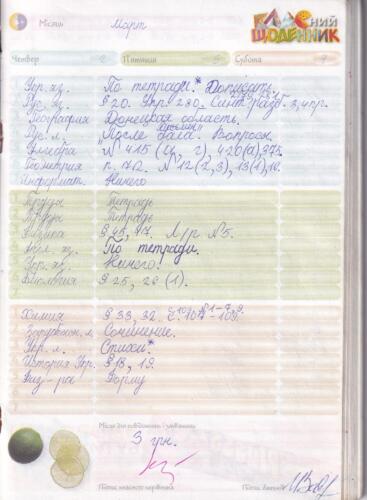 Місяць Март
КЛАСНИЙ
ЩОДЕННИК
Четвер П'ятниця Субота
Укр. яз. По тетради.* Дописать.
Рус. яз. § 20. Упр 230.
География Донецкая область.
Рус. л. "После бала". Вопросы.
Алгебра № 415 420(а),
Геометрия п. 72. № 12(2,3), 13(1),
Информат. Ничего
Труды Тетрадь
Труды Тетрадь
Физика § 45, 47. Л/р №5.
Англ. яз. По тетради.
Укр. яз. Ничего!
Биология § 25, 26 (1).
Химия § 33, 32.
Зарубежн. л. Сочинение.
Укр. л. Стихи*
История Укр. § 18, 19.
Физ-ра Форму
Місце для повідомлень і зауважень
3 грн.
Підпис класного керівника Підпис батьків